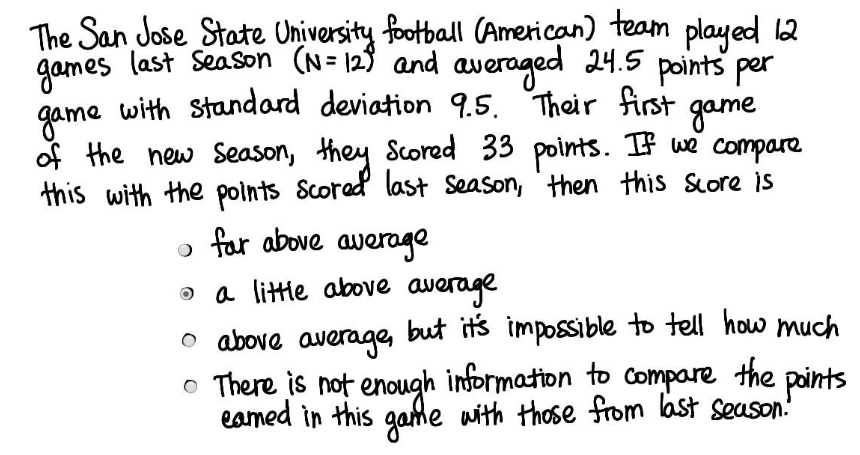 The San Jose State University football (American) team played 12
games last season (N=12) and averaged 24.5 points per
game with standard deviation 9.5. Their first game
of the new season, they scored 33 points. If we compare
this with the points scored last season, then this score is
far above average
a little above average
above average, but it's impossible to tell how much
There is not enough information to compare the points
earned in this game with those from last season.